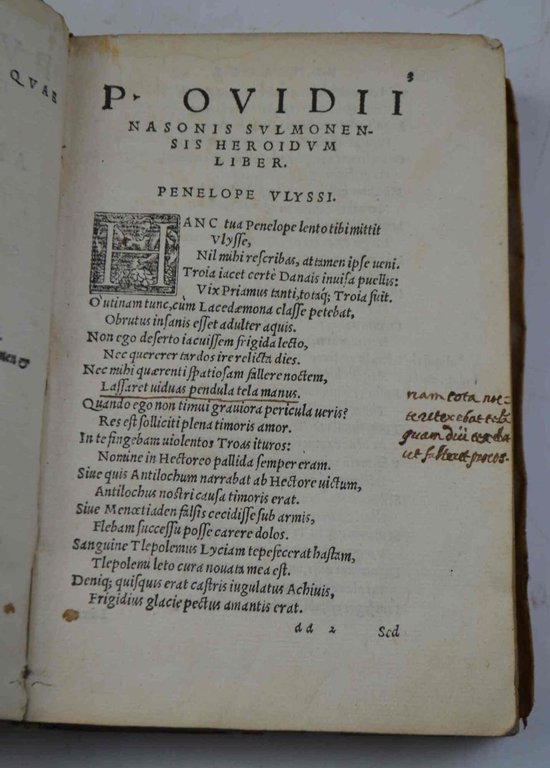 QVAE
P. OVIDII
NASONIS SVLMONEN-
SIS HEROIDVM
LIBER.
PENELOPE VLYSSI.
HANC tua Penelope lento tibi mittit
Vlysse,
Nil mihi rescribas, attamen ipse veni.
Troia iacet certè Danais inuisa puellis:
Vix Priamus tanti, totaq; Troia fuit.
O utinam tunc, cùm Lacedæmona classe petebat,
Obrutus insanis esset adulter aquis.
Non ego deserto iacuissem frigida lecto,
Nec quererer tardos ire relicta dies.
Nec mihi quærenti spatiosam fallere noctem,
Lassaret uiduas pendula tela manus.
Quando ego non timui grauiora pericula ueris?
Res est solliciti plena timoris amor.
In te fingebam uiolentos Troas ituros:
Nomine in Hectoreo pallida semper eram.
Siue quis Antilochum narrabat ab Hectore uictum,
Antilochus nostri causa timoris erat.
Siue Menœtiaden falsis cecidisse sub armis,
Flebam successu posse carere dolos.
Sanguine Tlepolemus Lyciam tepefecerat hastam,
Tlepolemi leto cura nouata mea est.
Deniq; quisquis erat castris iugulatus Achiuis,
Frigidius glacie pectus amantis erat.
dd 2 Sed
nam tota noc-
te retexebat telā
quam diu